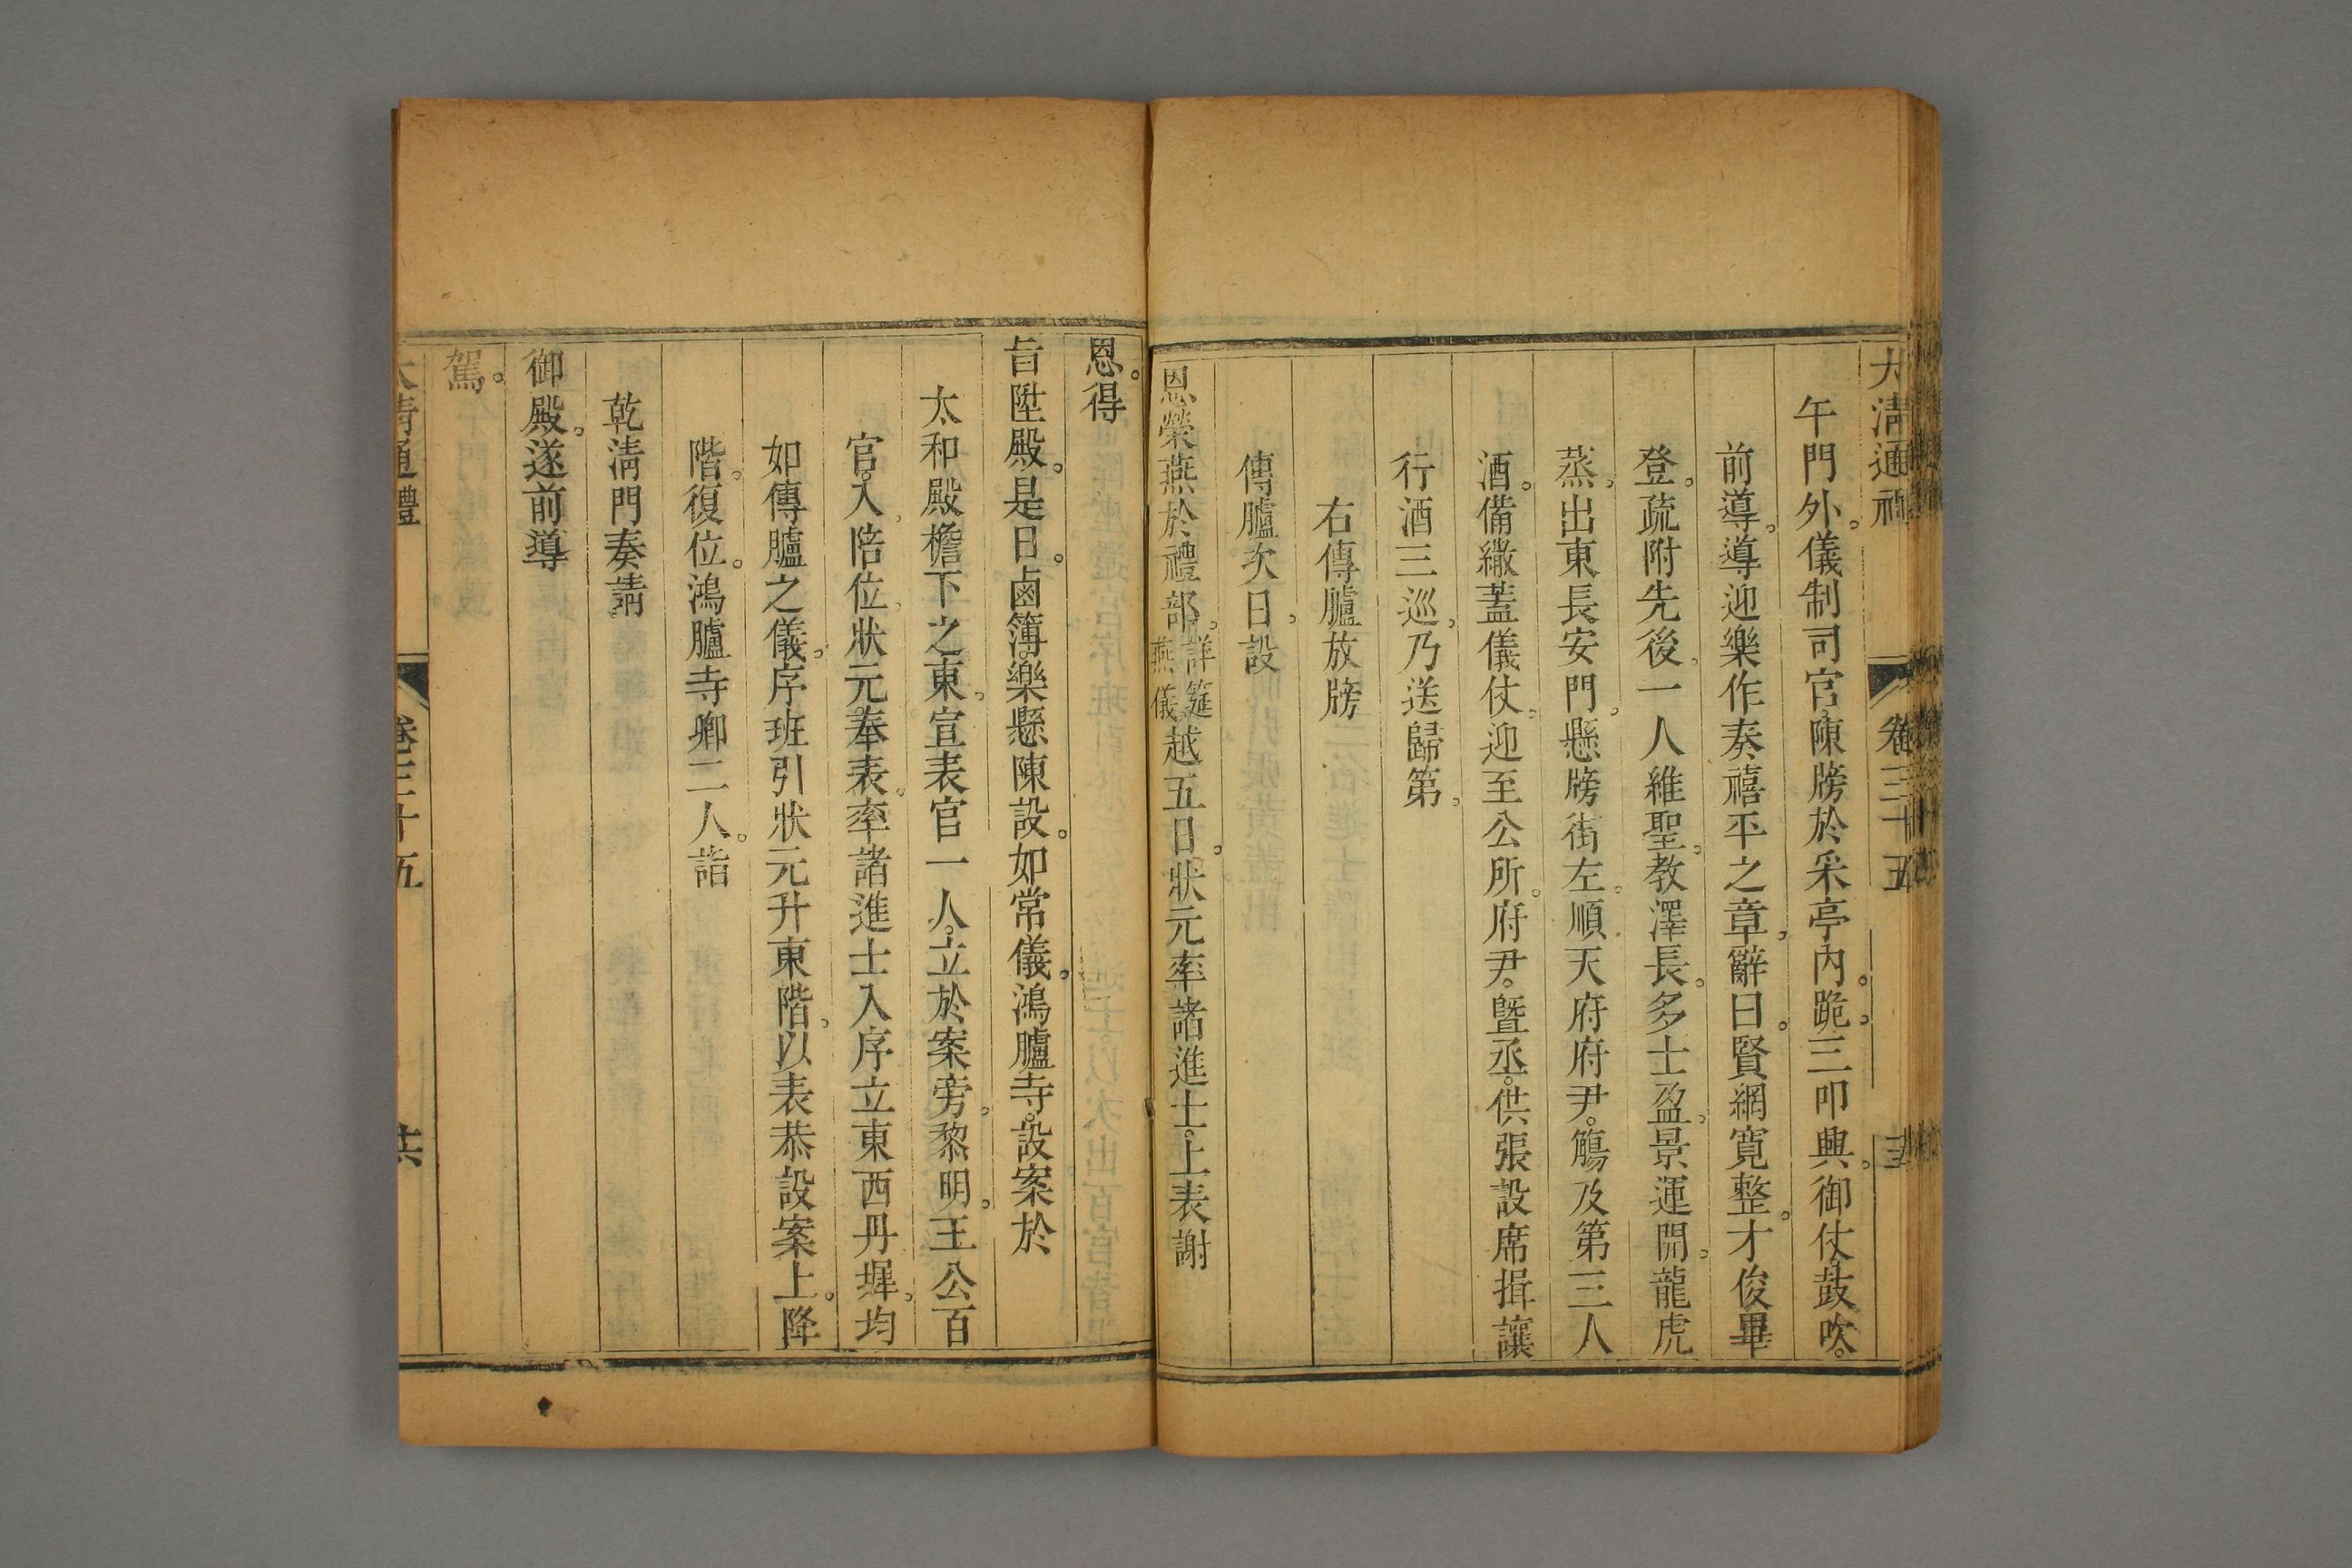 大淸通禮 卷三十五
午門外。儀制司官。陳牓於采亭內。跪。三叩興。御仗。鼓吹。
前導。導迎樂作奏禧平之章。辭曰。賢網寬整。才俊畢
登。疏附先後。一人維聖。教澤長。多士盈。景運開。龍虎
蒸。出東長安門。懸牓街左。順天府府尹。觴及第三人
酒。備繖蓋儀仗。迎至公所。府尹。曁丞。供張設席揖讓
行酒三巡。乃送歸第。
右傳臚放牓
傳臚次日。設
恩榮燕於禮部。詳筵燕儀越五日。狀元率諸進士。上表謝
恩。得
旨陞殿。是日。鹵簿。樂懸陳設。如常儀。鴻臚寺。設案於
太和殿檐下之東。宣表官一人。立於案旁。黎明。王公百
官。入陪位。狀元。奉表。率諸進士入序立東西丹墀。均
如傳臚之儀。序班引狀元升東階。以表恭設案上。降
階。復位。鴻臚寺卿二人。詣
乾淸門奏請
御殿。遂前導
駕。
大淸通禮 卷三十五 共